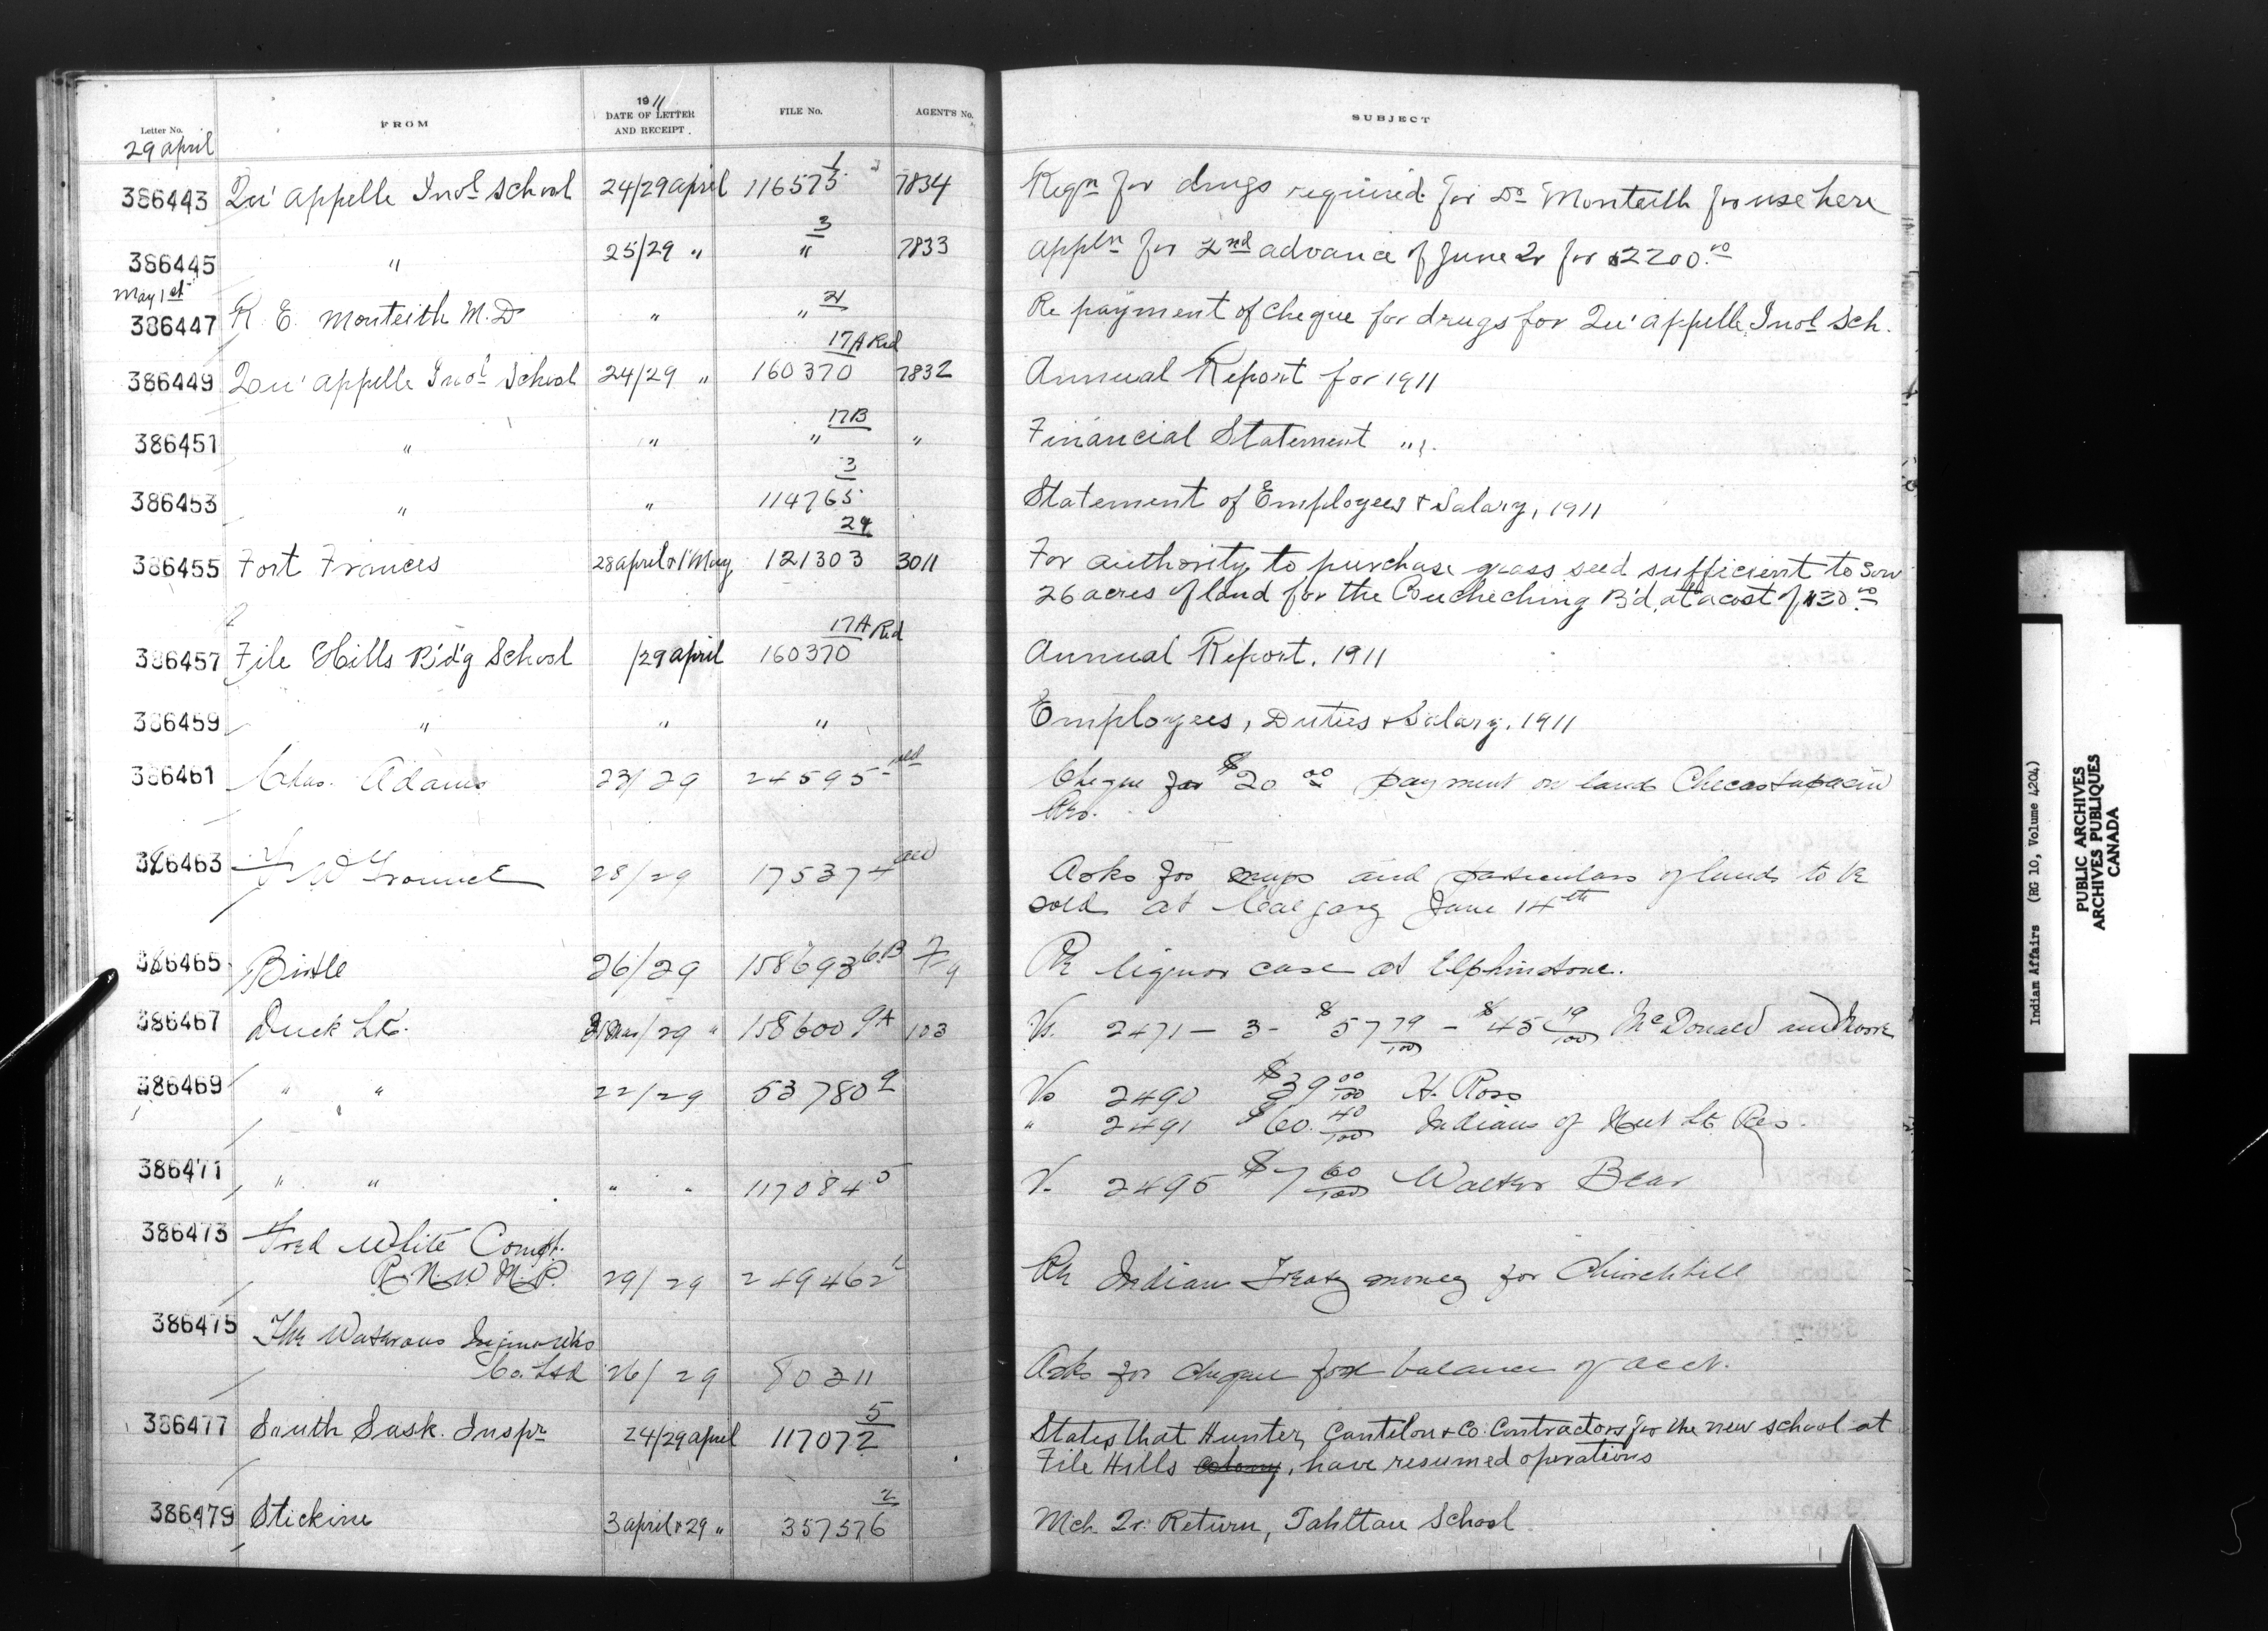 Letter No. FROM 1911 DATE OF LETTER AND RECEIPT. FILE No. AGENT'S No. SUBJECT
29 april
386443 Qu'appelle Indl School 24/29 april 116575 1 7834 Reqn for drugs required for Dr Monteith for use here
386445 " 25/29 " " 3 7833 appln for 2nd advance of June Qr for $2200.00
May 1st
386447 R. E. Monteith M.D " " 21 Re payment of cheque for drugs for Qu'appelle Indl Sch.
386449 Qu'appelle Indl School 24/29 " 160370 17A Red 7832 Annual Report for 1911
386451 " " " 17B " Financial Statement " .
386453 " " 114765 3 Statement of Employees & Salary, 1911
386455 Fort Frances 28 april & 1 May 121303 29 3011 For authority to purchase grass seed sufficient to sow
26 acres of land for the B'd, at a cost of $30.00
386457 File Hills B'd'g School /29 april 160370 17A Red Annual Report. 1911
386459 " " " Employees, Duties & Salary, 1911
386461 Chas. Adams 23/29 24595 Cheque for $20 00 payment on land
386463 28/29 175374 Asks for maps and particulars of lands to be
sold at Calgary June 14th
386465 Birtle 26/29 158693 6B Re liquor case at Elphinstone.
386467 Duck Lk. /29 " 158600 9A 103 Vs. 2471 - 3 - $57 79/100 - $45 19/100 McDonald and Moore
386469 " " 22/29 53780 9 Vo 2490 $39 00/100 H. Ross
" 2491 $60. 40/100 Indians of Nut Lk Res.
386471 " " " " 117084 5 V. 2495 $7 60/100 Walter Bear
386473 Fred White Compt.
R. N. W. M. P. 29/29 249462 2 Re Indian Treaty money for Churchill
386475 The Waterous Engine Wks
Co. Ltd 26/29 80311 Asks for cheque for balance of acct.
386477 South Sask. Inspr 24/29 april 117072 5 States that Hunter, Cantelon & Co. Contractors for the new school at
File Hills colony, have resumed operations
386479 Stickine 3 april & 29 " 357576 2 Mch. Qr. Return, Tahltan School
Indian Affairs (RG 10, Volume 4204)
PUBLIC ARCHIVES
ARCHIVES PUBLIQUES
CANADA